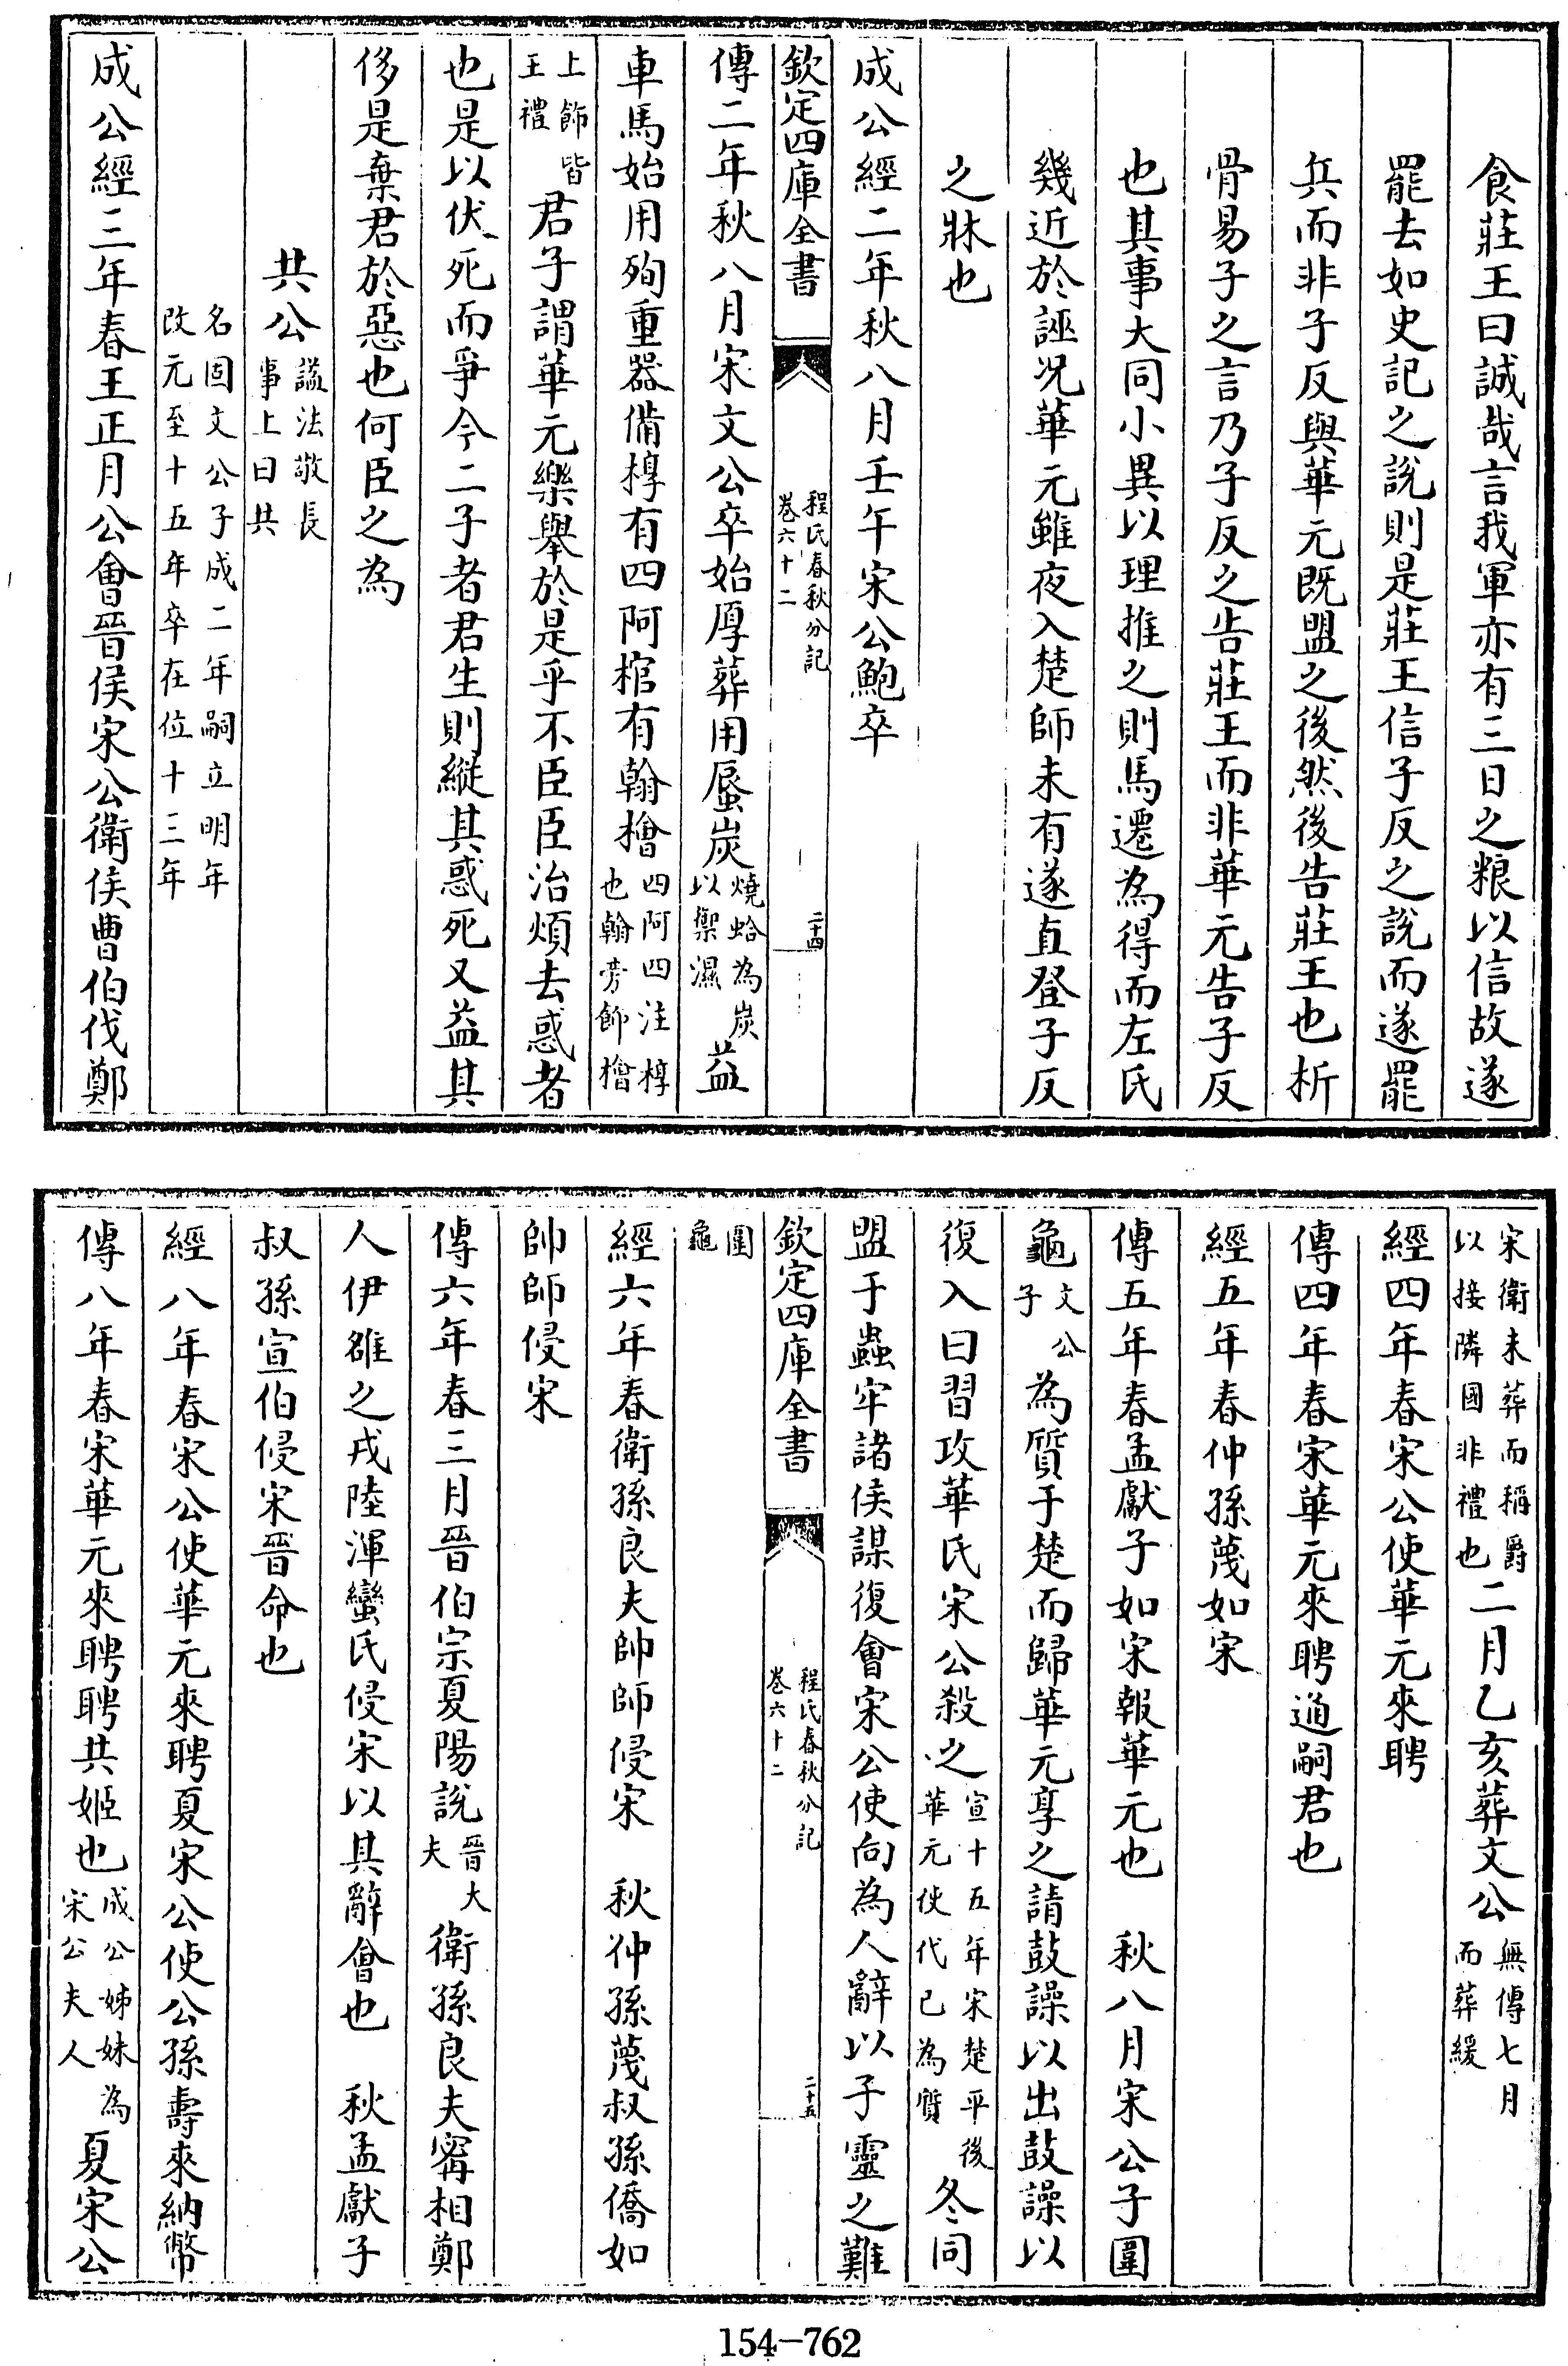 食莊王曰誠哉言我軍亦有三日之粮以信故遂
罷去如史記之說則是莊王信子反之說而遂罷
兵而非子反與華元既盟之後然後告莊王也析
骨易子之言乃子反之告莊王而非華元告子反
也其事大同小異以理推之則馬遷為得而左氏
幾近於誣况華元雖夜入楚師未有遂直登子反
之牀也
成公經二年秋八月壬午宋公鮑卒
欽定四庫全書
程氏春秋分記
卷六十二
二十四
傳二年秋八月宋文公卒始厚葬用蜃炭燒蛤為炭以禦濕益
車馬始用殉重器備椁有四阿棺有翰檜四阿四注椁也翰旁飾檜
上飾皆王禮君子謂華元樂舉於是乎不臣臣治煩去惑者
也是以伏死而爭今二子者君生則縱其惑死又益其
侈是棄君於惡也何臣之為
共公諡法敬長事上曰共
名固文公子成二年嗣立明年改元至十五年卒在位十三年
成公經三年春王正月公會晉侯宋公衛侯曹伯伐鄭
宋衛未葬而稱爵以接隣國非禮也二月乙亥葬文公無傳七月而葬緩
經四年春宋公使華元來聘
傳四年春宋華元來聘通嗣君也
經五年春仲孫蔑如宋
傳五年春孟獻子如宋報華元也　秋八月宋公子圍
龜文公子為質于楚而歸華元享之請鼓譟以出鼓譟以
復入曰習攻華氏宋公殺之宣十五年宋楚平後華元使代己為質冬同
盟于蟲牢諸侯謀復會宋公使向為人辭以子靈之難
欽定四庫全書
程氏春秋分記
卷六十二
二十五
圍龜
經六年春衛孫良夫帥師侵宋　秋仲孫蔑叔孫僑如
帥師侵宋
傳六年春三月晉伯宗夏陽說晉大夫衛孫良夫甯相鄭
人伊雒之戎陸渾蠻氏侵宋以其辭會也　秋孟獻子
叔孫宣伯侵宋晉命也
經八年春宋公使華元來聘夏宋公使公孫壽來納幣
傳八年春宋華元來聘聘共姬也成公姊妹為宋公夫人夏宋公
154-762